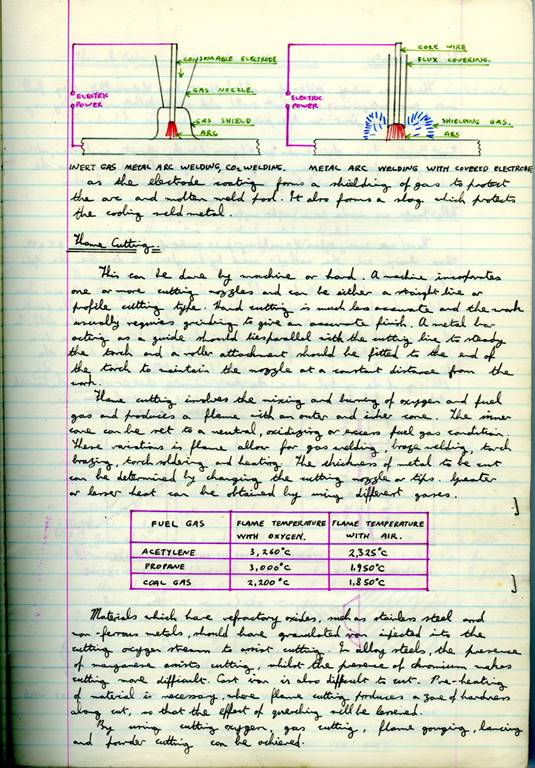 CONSUMABLE ELECTRODE
GAS NOZZLE.
ELECTRIC
POWER
GAS SHIELD
ARC
CORE WIRE
FLUX COVERING.
ELECTRIC
POWER
SHIELDING GAS.
ARC
INERT GAS METAL ARC WELDING, CO2 WELDING.
METAL ARC WELDING WITH COVERED ELECTRODE
as the electrode coating forms a shielding of gas to protect
the arc and molten weld pool. It also forms a slag which protects
the cooling weld metal.
Flame Cutting.
This can be done by machine or hand. A machine incorporates
one or more cutting nozzles and can be either a straight line or
profile cutting type. Hand cutting is much less accurate and the work
usually requires grinding to give an accurate finish. A metal bar
acting as a guide should lie parallel with the cutting line to steady
the torch and a roller attachment should be fitted to the end of
the torch to maintain the nozzle at a constant distance from the
work.
Flame cutting involves the mixing and burning of oxygen and fuel
gas and produces a flame with an outer and inner cone. The inner
cone can be set to a neutral, oxidizing or excess fuel gas condition.
These variations in flame allow for gas welding, braze welding, torch
brazing, torch soldering and heating. The thickness of metal to be cut
can be determined by changing the cutting nozzle or tips. Greater
or lesser heat can be obtained by using different gases.
FUEL GAS
FLAME TEMPERATURE
WITH OXYGEN.
FLAME TEMPERATURE
WITH AIR.
ACETYLENE 3,260°C 2,325°C
PROPANE 3,000°C 1,950°C
COAL GAS 2,200°C 1,850°C
Materials which have refractory oxides, such as stainless steel and
non-ferrous metals, should have granulated iron injected into the
cutting oxygen stream to assist cutting. In alloy steels, the presence
of manganese assists cutting, whilst the presence of chromium makes
cutting more difficult. Cast iron is also difficult to cut. Pre-heating
of material is necessary, where flame cutting produces a zone of hardness
along cut, so that the effect of quenching will be lessened.
By using cutting oxygen, gas cutting, flame gouging, lancing
and powder cutting can be achieved.